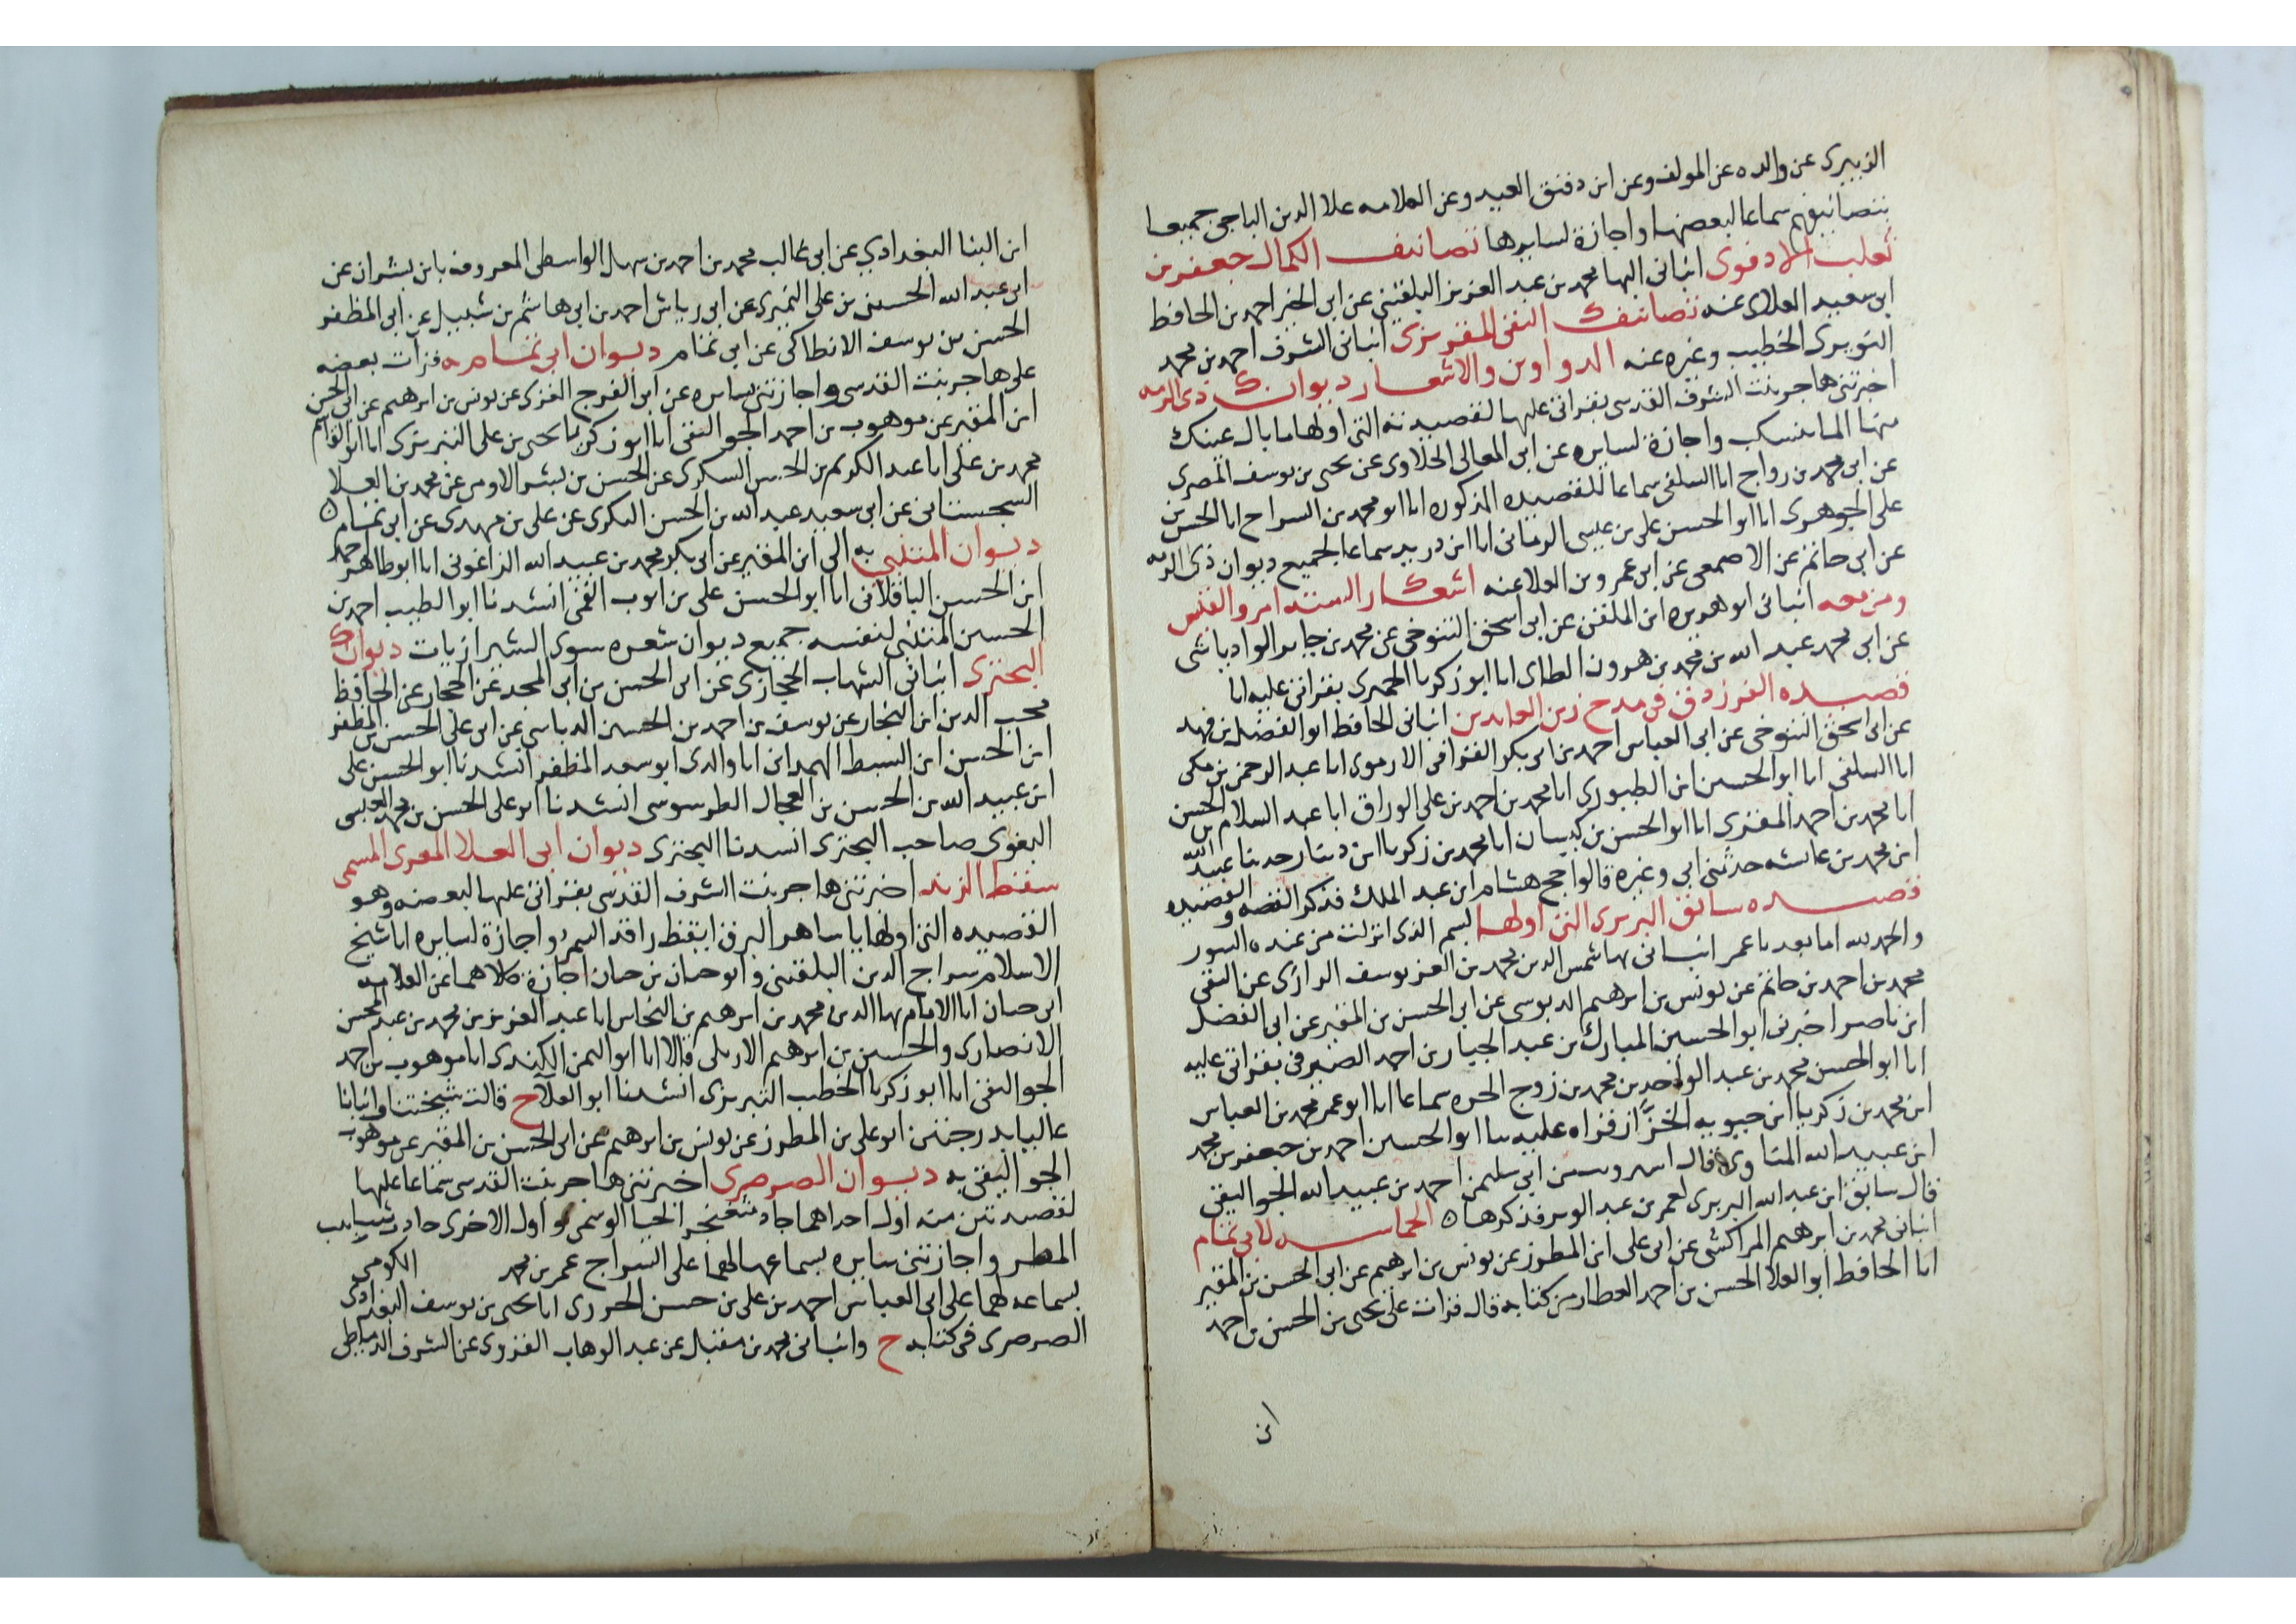 الزبيرى عن والده عن المولف وعن ابن دقيق العيد وعن العلامه علا الدين الباجى جميعا
بتصانيفهم سماعا لبعضها واجازة لسايرها تصانيف الكمال جعفر بن
ثعلب الادفوى انبانى البها محمد بن عبد العزيز البلقينى عن ابى الخير احمد بن الحافظ
ابى سعيد العلاى عنه تصانيف التقى المقريزى انبانى الشرف احمد بن محمد
النويرى الخطيب وغيره عنه الدواوين والاشعار ديوان ذى الرمه
اخبرتنى هاجر بنت الشرف القدسى بقراتى عليها لقصيدته التى اولها ما بال عينك
منها الما ينسكب واجازة لسايره عن ابى المعالى الحلاوى عن يحيى بن يوسف المصرى
عن ابى محمد بن رواج انا السلفى سماعا للقصيده المذكوره انا ابو محمد بن السراج انا الحسن بن
على الجوهرى انا ابو الحسن على بن عيسى الرمانى انا ابن دريد سماعا لجميع ديوان ذى الرمه
عن ابى حاتم عن الاصمعى عن ابى عمرو بن العلا عنه اشعار السته امرو القيس
ومن معه انبانى ابو هريره ابن الملقن عن ابى اسحق التنوخى عن محمد بن جابر الوادياشى
عن ابى محمد عبد الله بن محمد بن هرون الطاى انا ابو زكريا الحميرى بقراتى عليه انا
قصيده الفرزدق فى مدح زين العابدين انبانى الحافظ ابو الفضل بن فهد
عن ابى اسحق التنوخى عن ابى العباس احمد بن ابى بكر القرافى الارموى انا عبد الرحمن بن مكى
انا السلفى انا ابو الحسين ابن الطيورى انا محمد بن احمد بن على الوراق انا عبد السلام بن الحسن
انا محمد بن احمد المقرى انا ابو الحسن بن كيسان انا محمد بن زكريا ابن دينار حدثنا عبيد الله
ابن محمد بن عائشه حدثنى ابى وغيره قالوا حج هشام ابن عبد الملك فذكر القصه والقصيده
قصيده سابق البربرى التى اولها بسم الذى انزلت من عنده السور
والحمد لله اما بعد يا عمر انبانى بها شمس الدين محمد بن العز يوسف الرازى عن التقى
محمد بن احمد بن حاتم عن يونس بن ابرهيم الدبوسى عن ابى الحسن بن المقير عن ابى الفضل
ابن ناصر اخبرنى ابو الحسين المبارك بن عبد الجبار بن احمد الصيرفى بقراتى عليه
انا ابو الحسن محمد بن عبد الواحد بن محمد بن زوج الحره سماعا انا ابو عمر محمد بن العباس
ابن محمد بن زكريا ابن حيويه الخزاز قراه عليه نا ابو الحسين احمد بن جعفر بن محمد
ابن عبيد الله المناوى قال بن ابى سليمن احمد بن عبيد الله الجواليقى
قال سابق ابن عبد الله البربرى لعمر بن عبد العزيز فذكرها ه الحماسه لابى تمام
انبانى محمد بن ابرهيم المراكشى عن ابى على ابن المطرز عن يونس بن ابرهيم عن ابى الحسن بن المقير
انا الحافظ ابو العلا الحسن بن احمد العطار من كتابه قال قرات على يحيى بن الحسن بن احمد
ابن
ابن البنا البغدادي عن ابى غالب محمد بن احمد بن سهل الواسطى المعروف بابن بشران عن
ابى عبد الله الحسين بن على النميرى عن ابى رياش احمد بن ابى هاشم بن شبيل عن ابى المظفر
الحسن بن يوسف الانطاكى عن ابى تمام ديوان ابى تمام قرات بعضه
على هاجر بنت القدسى واجازتنى سايره عن ابى الفرج الغزى عن يونس بن ابرهيم عن ابى الحسن
ابن المقير عن موهوب بن احمد الجواليقى انا ابو زكريا يحيى بن على التبريزى انا ابو القاسم
محمد بن على انا عبد الكريم بن الحسن السكرى عن الحسن بن بشر الامدى عن محمد بن العلا
السجستانى عن ابى سعيد عبد الله بن الحسن البكرى عن على بن مهدى عن ابى تمام ه
ديوان المتنبى به الى ابن المقير عن ابى بكر محمد بن عبيد الله الزاغونى انا ابو طاهر احمد
ابن الحسن الباقلانى انا ابو الحسن على بن ايوب القمى انشدنا ابو الطيب احمد بن
الحسين المتنبى لنفسه جميع ديوان شعره سوى الشيرازيات ديوان
البحترى انبانى الشهاب الحجازى عن ابى الحسن بن ابى المجد عن الحجار عن الحافظ
محب الدين ابن النجار عن يوسف بن احمد بن الحسين الدباس عن ابى على الحسن بن المظفر
ابن الحسن ابن السبط الهمدانى انا والدى ابو سعد المظفر انشدنا ابو الحسن على
ابن عبيد الله بن الحسن بن العجال الطرسوسى انشدنا ابو على الحسن بن محمد العبسى
البغوى صاحب البحترى انشدنا البحترى ديوان ابى العلا المعرى المسمى
سقط الزند اخبرتنى هاجر بنت الشرف القدسى بقراتى عليها لبعضه وهو
القصيده التى اولها يا ساهر البرق ايقظ راقد السمر واجازة لسايره انا شيخ
الاسلام سراج الدين البلقينى وابو حيان بن حيان اجازة كلاهما عن العلامه
ابى حيان انا الامام بها الدين محمد بن ابرهيم بن النحاس انا عبد العزيز بن محمد بن عبد المحسن
الانصارى والحسين بن ابرهيم الاربلى قالا انا ابو اليمن الكندى انا موهوب بن احمد
الجواليقى انا ابو زكريا الخطيب التبريزى انشدنا ابو العلا ح قالت شيختنا وانبانا
عاليا بدرجتين ابو على بن المطرز عن يونس بن ابرهيم عن ابى الحسن بن المقير عن موهوب
الجواليقى به ديوان الصرصرى اخبرتنى هاجر بنت القدسى سماعا عليها
لقصيدتين منه اول احداهما جاد مثعنجر الحيا الوسمى و اول الاخرى جادت شابيب
المطر واجازتنى سايره بسماعها لهما على السراج عمر بن محمد الكومى
بسماعه لهما على ابى العباس احمد بن على بن حسن الجزرى انا يحيى بن يوسف البغدادى
الصرصرى فى كتابه ح وانبانى محمد بن مقبل عن عبد الوهاب القروى عن الشرف الدمياطى